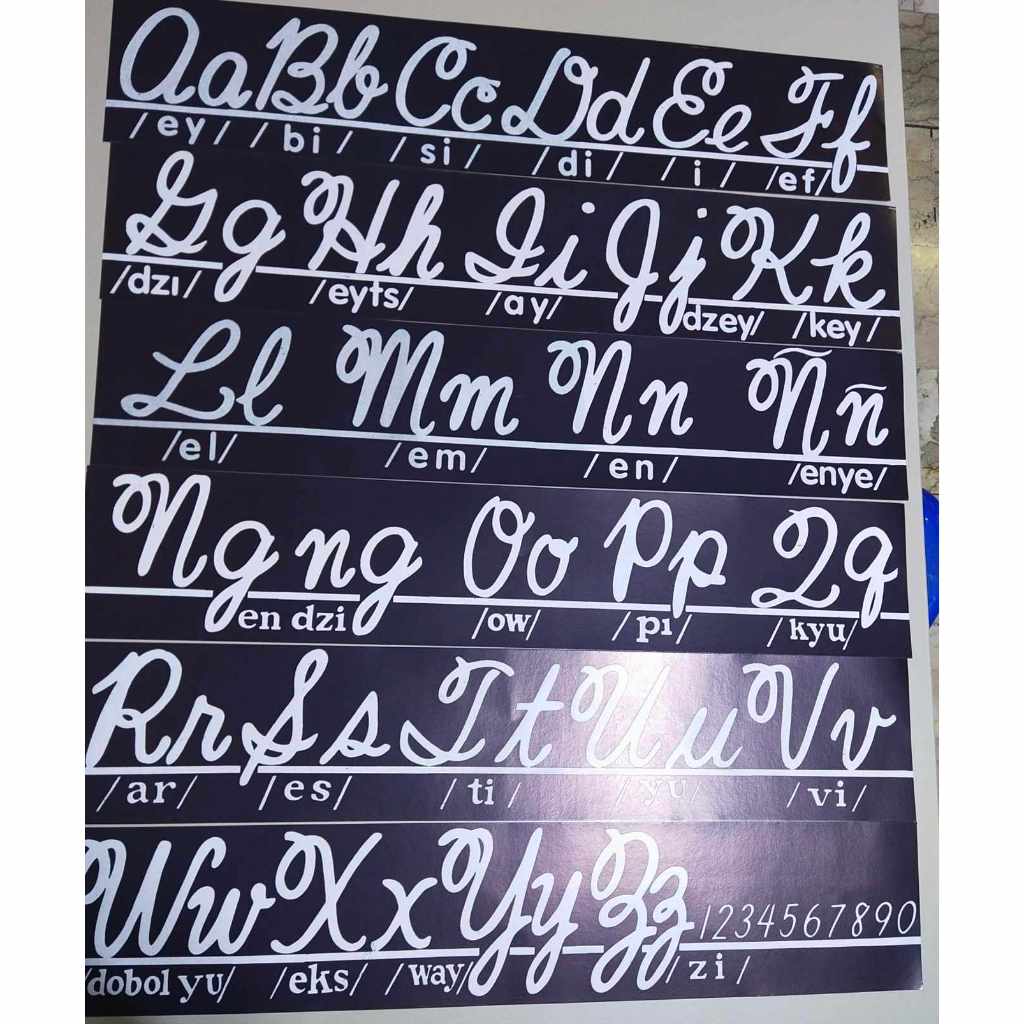 Aa Bb Cc Dd Ee Ff
/ey/ /bi/ /si/ /di/ /i/ /ef/
Gg Hh Ii Jj Kk
/dzı/ /eyts/ /ay/ dzey/ /key/
Ll Mm Nn Ññ
/el/ /em/ /en/ /enye/
Ng ng Oo Pp Qq
en dzi /ow/ /pi/ /kyu/
Rr Ss Tt Uu Vv
/ar/ /es/ /ti/ /yu/ /vi/
Ww Xx Yy Zz 1234567890
/dobol yu/ /eks/ /way/ /zi/